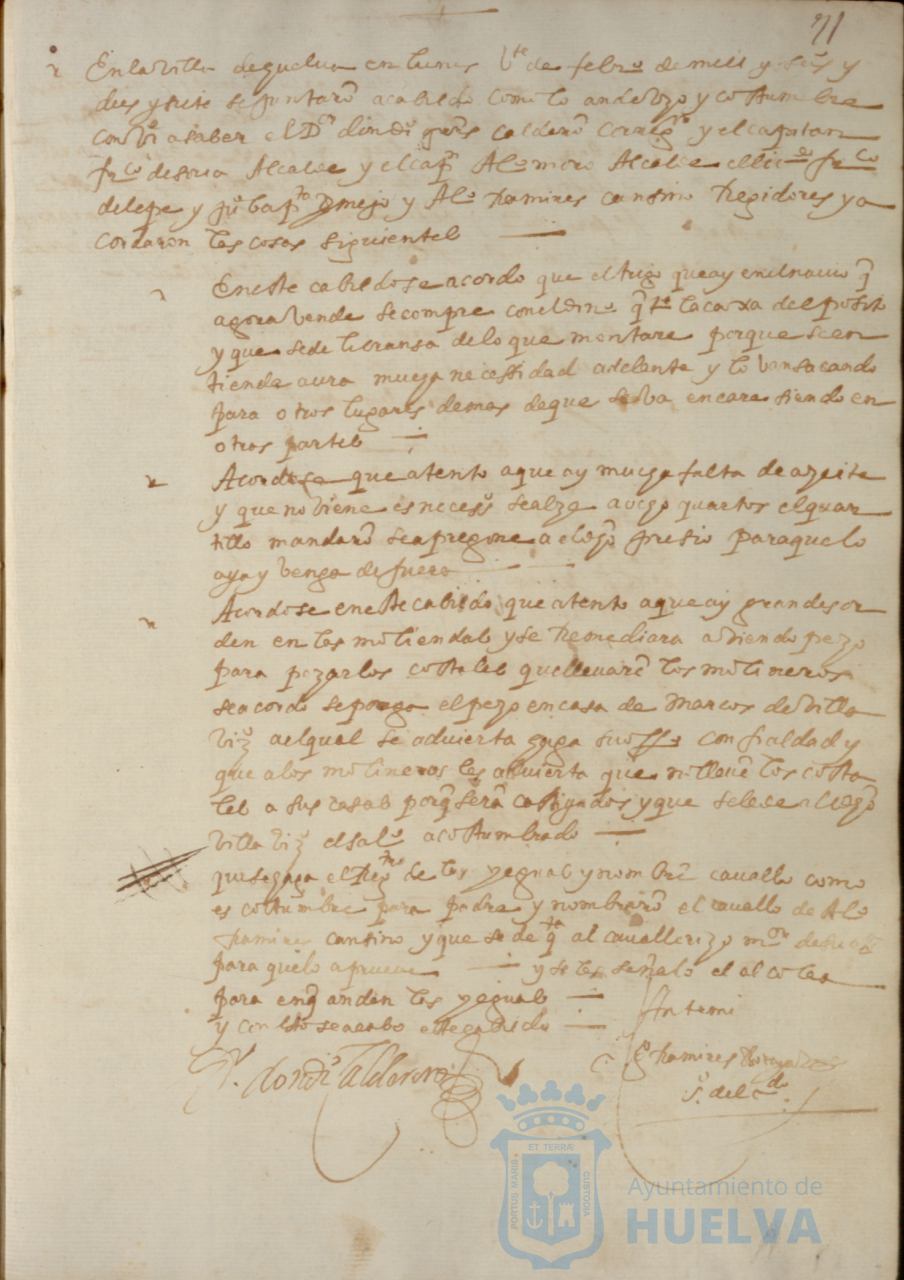 71
En la villa de guelva en lunes de febro de mill y seis y
dies y siete se juntarō a cabildo como lo an de uzo y costumbre
conbi a saber el Dor calderō Corregor y el capitan
frco de soria Alcalde y el cap Alo moro Alcalde el lido frco
de lepe y ju bapta y Alo Ramires cansino Regidores y a
cordaron las cosas siguientes
En este cabildo se acordo que el trigo que ay en el navio q
agora vende se compre con el dino q la caxa del posito
y que se de libransa de lo que montare porque se en
tiende aura muga necessidad adelante y lo van sacando
para otros lugares demas de que se va encaresiendo en
otras partes
Acordose que atento a que ay muga falta de azeite
y que no viene es neceso se alze a ogo quartos el quar
tillo mandarō se apregone a el dgo presio para que lo
aya y venga de fuera
Acordose en este cabildo que atento a que ay gran desor
den en las moliendas y se Remediara aviendo pezo
para pezar los costales que llevarē los molineros
se acordo se ponga el pezo en casa de Marcos de villa
viz al qual se advierta gaga su offo con fialdad y
que a los molineros les advierta que no llevē los costa
les a sus casas porq serā castigados y que se le de a el dgo
villa viz el salo acostumbrado
que se gaga el Rego de las yeguas y nombrē cavallo como
es costumbre para padre y nombrarō el cavallo de Alo
Ramires cansino y que se de qta al cavallerizo mor
para que lo aprueve y se les señalo el alcolea
para en q anden las yeguas
y con esto se acabo este cabildo
Ante mi
Calderon
Ramires
so del cdo
PORTUS MARIS
ET TERRÆ
CUSTODIA
Ayuntamiento de
HUELVA